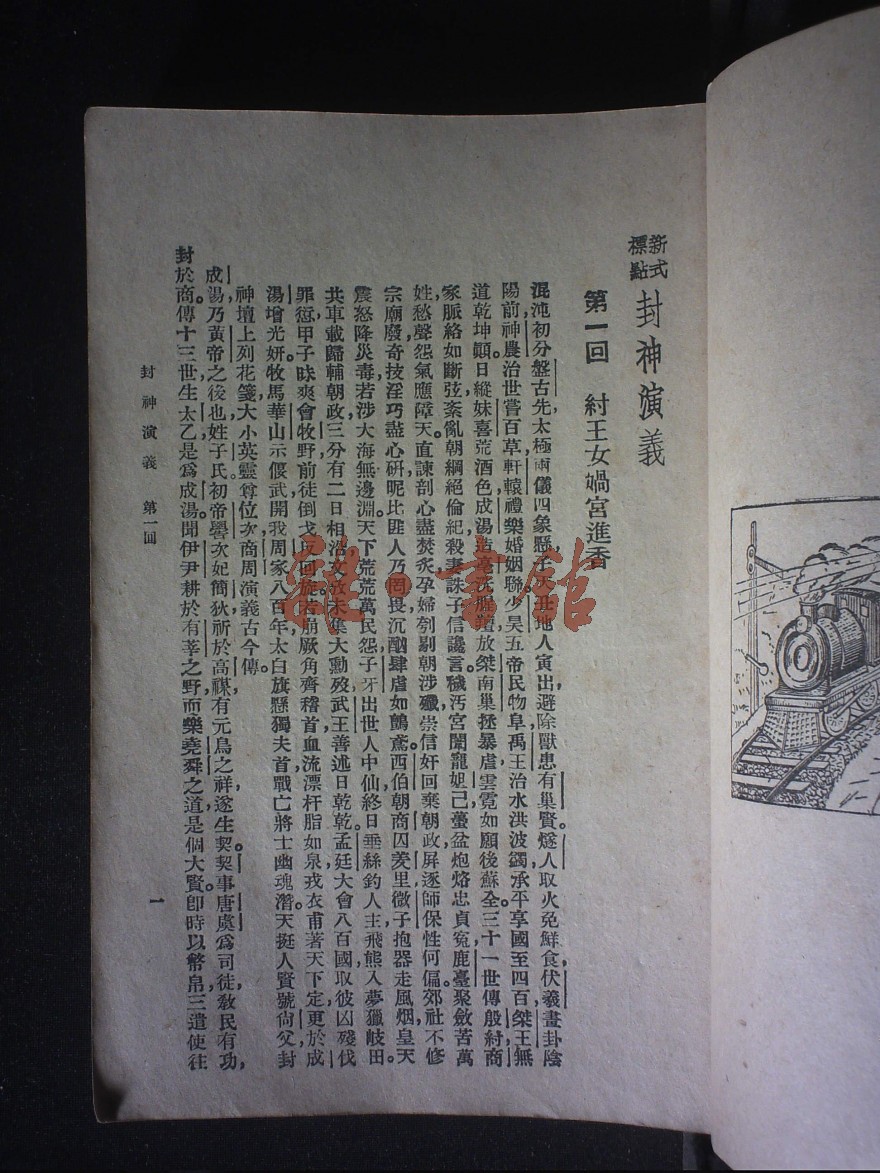 新式標點 封神演義
第一回　紂王女媧宮進香
混沌初分盤古先，太極兩儀四象懸，子天丑地人寅出，避除獸患有巢賢。燧人取火免鮮食，伏羲畫卦陰
陽前，神農治世嘗百草，軒轅禮樂婚姻聯，少昊五帝民物阜，禹王治水洪波蠲，承平享國至四百，桀王無
道乾坤顛。日縱妹喜荒酒色，成湯造亳洗腥羶，放桀南巢拯暴虐，雲霓如願後蘇全。三十一世傳殷紂，商
家脈絡如斷弦，紊亂朝綱絕倫紀，殺妻誅子信讒言。穢汚宮闈寵妲己，蠆盆炮烙忠貞冤，鹿臺聚斂苦萬
姓，愁聲怨氣應障天。直諫剖心盡焚炙，孕婦刳剔朝涉殲，崇信奸回棄朝政，屏逐師保性何偏。郊社不修
宗廟廢，奇技淫巧盡心硏，昵比匪人乃罔畏，沉酗肆虐如鸇鳶。西伯朝商囚羑里，微子抱器走風烟，皇天
震怒降災毒，若涉大海無邊淵。天下荒荒萬民怨，子牙出世人中仙，終日垂絲釣人主，飛熊入夢獵岐田。
共車載歸輔朝政，三分有二日相沿，文考未集大勳歿，武王善述日乾乾，孟廷大會八百國，取彼凶殘伐
罪愆，甲子昧爽會牧野，前徒倒戈反回旋，若崩厥角齊稽首，血流漂杵脂如泉，戎衣甫著天下定，更於成
湯增光妍。牧馬華山示偃武，開我周家八百年，太白旗懸獨夫首，戰亡將士幽魂潛。天挺人賢號尙父，封
神壇上列花箋，大小英靈尊位次，商周演義古今傳。
成湯，乃黃帝之後也，姓子氏。初，帝嚳次妃簡狄祈於高禖，有元鳥之祥，遂生契。契事唐虞爲司徒，敎民有功，
封於商。傳十三世生太乙，是爲成湯。聞伊尹耕於有莘之野，而樂堯舜之道，是個大賢。卽時以幣帛，三遣使往
封神演義　第一回
一
雜·書館